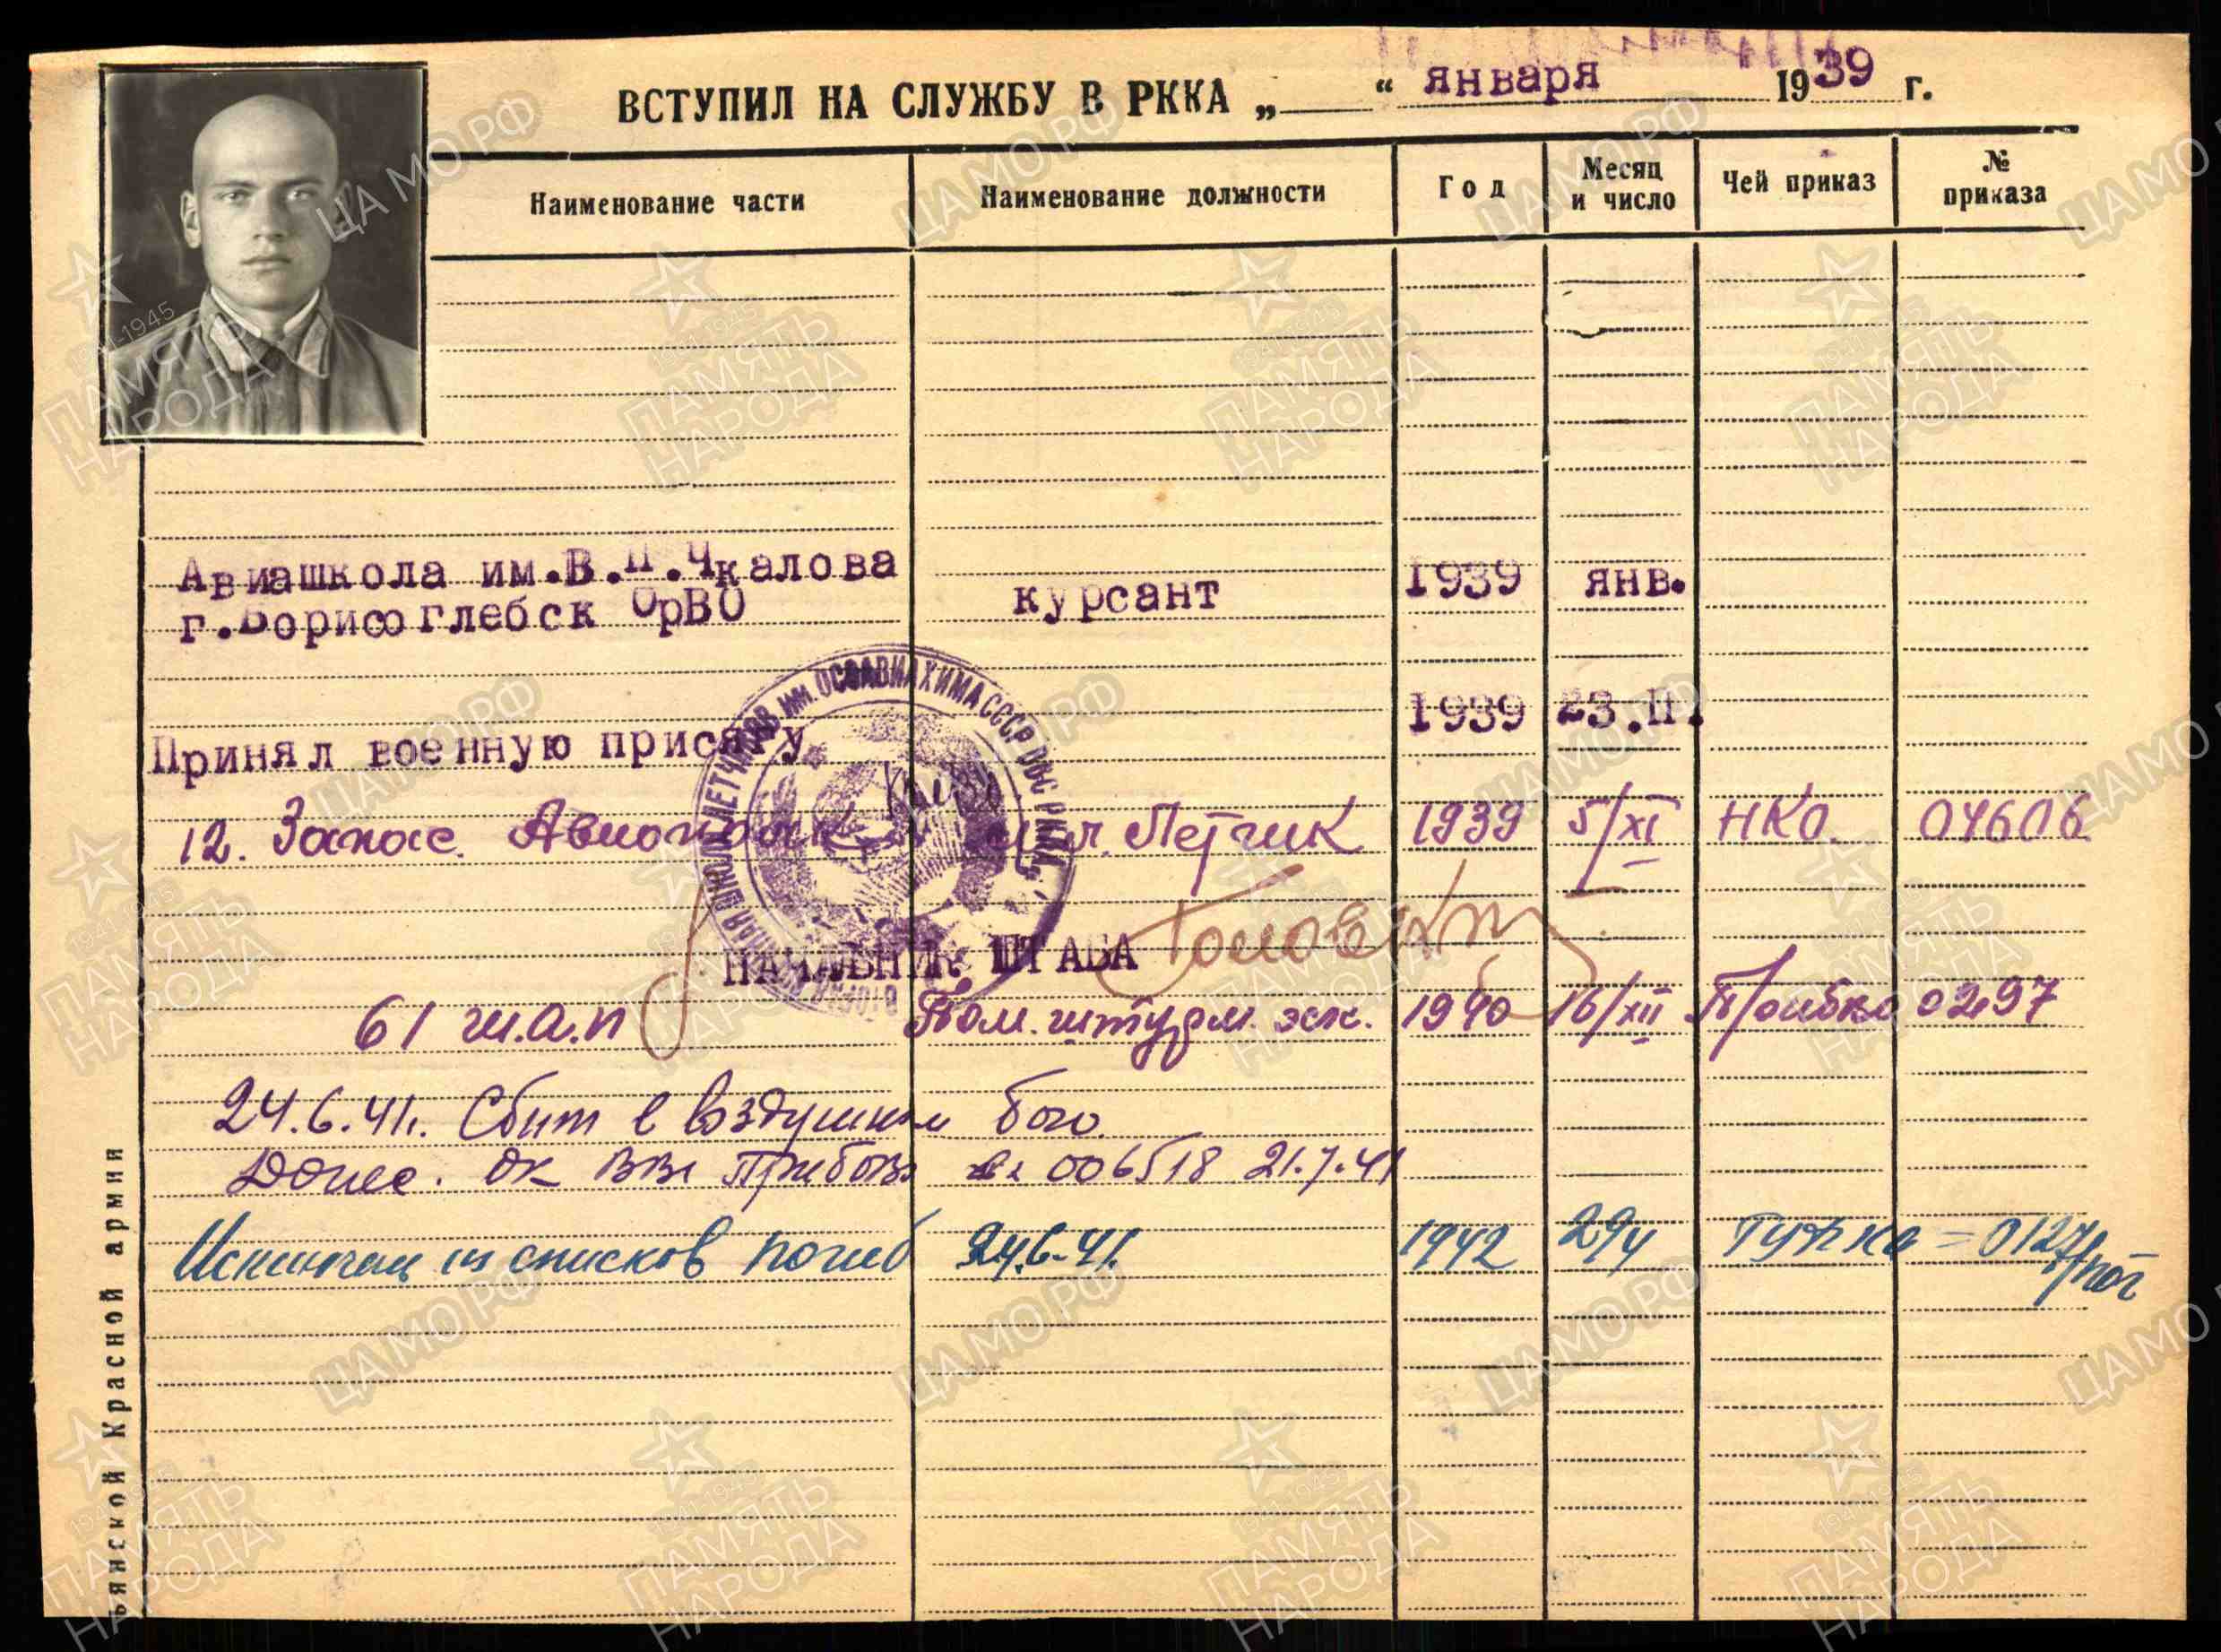 ВСТУПИЛ НА СЛУЖБУ В РККА „ “ января 1939 г.
Наименование части Наименование должности Год Месяц и число Чей приказ № приказа
Авиашкола им.В.П.Чкалова
г.Борисоглебск ОрВО курсант 1939 янв.
Принял военную присягу 1939 23.II.
12. Запас. Авиополк мл. Летчик 1939 5/XI НКО. 04606
НАЧАЛЬНИК ШТАБА
61 ш.а.п Пом. штурм. эск. 1940 16/XII 0297
24.6.41г. Сбит в воздушном бою.
Донес. ОК ВВС ПрибОВО № 006518 21.7.41
Исключен из списков погиб 24.6.41. 1942 29/4 ГУФКА = 0127/пог
ьянской Красной армии
ИМ. ОСОАВИАХИМА СССР ВВС РККА
ЦАМО.РФ
1941-1945
ПАМЯТЬ
НАРОДА